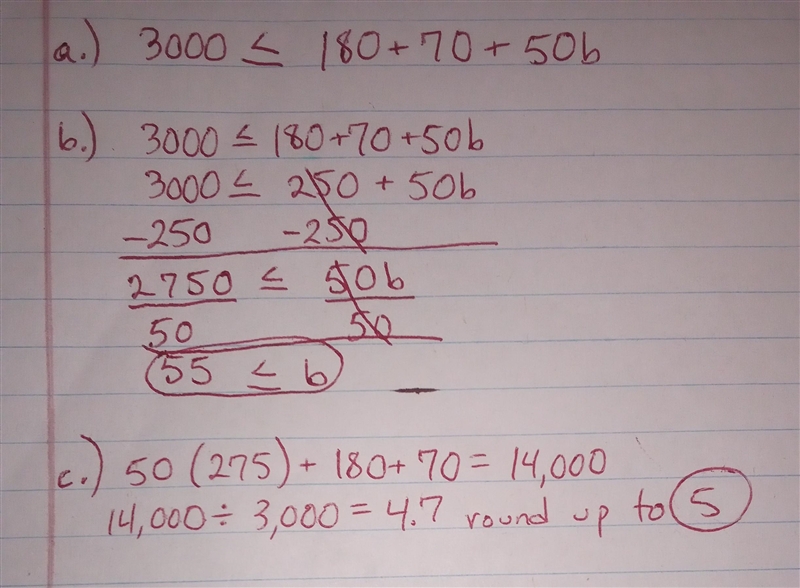 a.) 3000 ≤ 180+70+50b
b.) 3000 ≤ 180+70+50b
3000 ≤ 250 + 50b
-250 -250
2750 ≤ 50b
50 50
55 ≤ b
c.) 50 (275) + 180+70 = 14,000
14,000 ÷ 3,000 = 4.7 round up to 5